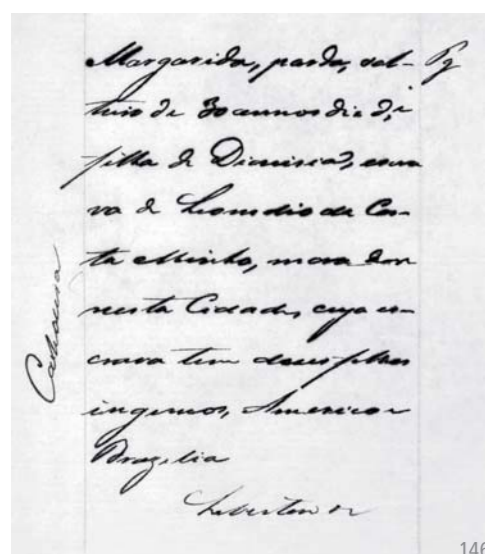 Margarida, parda, sol- Pg
teira de 30 annos de id.e
filha de Dionisia, escra
va de Leonidio da Cos-
ta Minho, mora dor
nesta Cidade, cuja es-
crava tem dous filhos
ingenuos, Americo e
Brazilia
Libertou se
Cachoeira
146